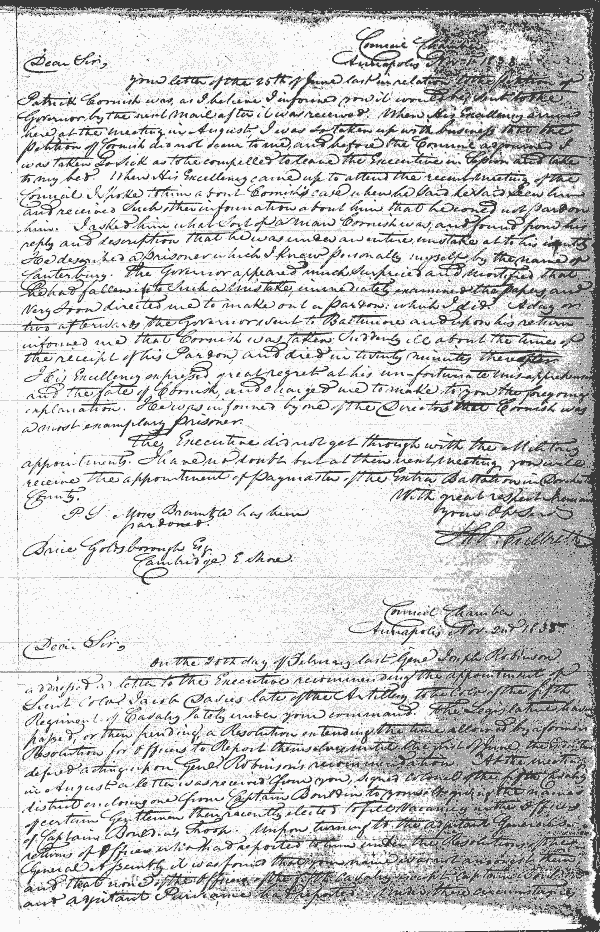 Council Chamber
Annapolis Nov. 1835
Dear Sir,
your letter of the 25th of June last in relation to the petition of
Patrick Cornish was, as I believe I informed you it would be, sent to the
Governor by the next Mail after it was received. When his Excellency arrived
here at the meeting in August I was so taken up with business that the
Petition of Cornish did not come to me, and before the Council adjourned I
was taken so sick as to be compelled to leave the Executive in Session and take
to my bed. When His Excellency came up to attend the recent Meeting of the
Council I spoke to him about Cornish's case when he said he had seen him
and received such other information about him that he could not pardon
him. I asked him what sort of a man Cornish was, and found from his
reply and description that he was under an entire mistake as to his identity
He described a prisoner which I knew personally myself by the name of
Canterbury. The Governor appeared much surprised and mortified that
he had fallen into such a mistake, immediately examined the papers and
very soon directed me to make out a Pardon, which I did. A day or
two afterwards the Governor went to Baltimore and upon his return
informed me that Cornish was taken suddenly ill about the time of
the receipt of his Pardon, and died in twenty minutes thereafter.
His Excellency expressed great regret at his unfortunate misapprehension
and the fate of Cornish, and charged me to make to you the foregoing
explanation. He was informed by one of the Directors that Cornish was
a most exemplary prisoner.
The Executive did not get through with the Military
appointments. I have no doubt but at their next meeting you will
receive the appointment of Paymaster of the Extra Battalion in Dorchester
County.
With great respect I remain
P.S. Moses Bramble has been
your Ob. Serv.
pardoned.
Brice Goldsborough Esq.
Cambridge E Shore.
Council Chamber
Annapolis Nov. 2nd 1835
Dear Sir,
On the 20th day of February last Genl Joseph Robinson
addressed a letter to the Executive recommending the appointment of
Lieut Colo. Jacob Davies late of the Artillery to the Colo. of the fifth
Regiment of Cavalry lately under your command. The Legislature having
passed, or then pending, a Resolution extending the time allowed by a former
Resolution for Officers to Report themselves until the first of June, the Executive
defered acting upon Genl Robinson's recommendation. At the meeting
in August a letter was received from you, signed colonel of the fifth Cavalry
district enclosing one from Captain Bouldin to you requiring the names
of certain Gentlemen then recently elected to fill Vacancies in the Offices
of Captain Bouldin's Troop. Upon turning to the adjutant General's
returns of Officers who had reported to him under the Resolutions of the
General Assembly it was found that your name was not amongst them
and that none of the Officers of the fifth Cavalry except Captain Bouldin
and adjutant had reported. Under these circumstances